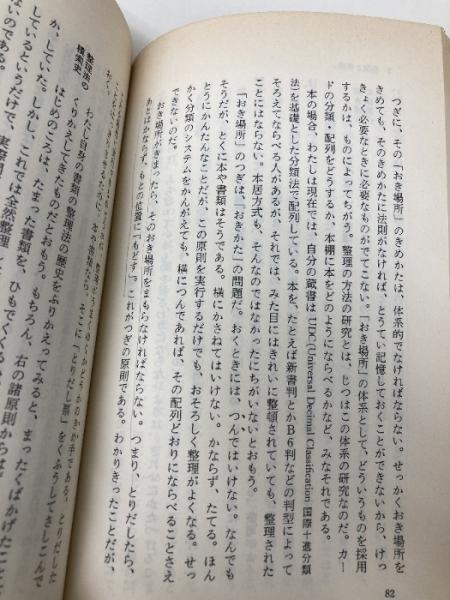 つぎに、その「おき場所」のきめかたは、体系的でなければならない。せっかくおき場所を
きめても、そのきめかたに法則がなければ、とうてい記憶しておくことができないから、けっ
きょく必要なときに必要なものがでてこない。「おき場所」の体系として、どういうものを採用
するかは、ものによってちがう。整理の方法の研究とは、じつはこの体系の研究なのだ。カー
ドの分類・配列をどうするか、本棚に本をどのようにならべるかなど、みなそれである。
本の場合、わたしは現在では、自分の蔵書はUDC(Universal Decimal Classification 国際十進分類
法)を基礎とした分類法で配列している。本を、たとえば新書判とかB6判などの判型によって
そろえてならべる人があるが、それでは、みた目にはきれいに整頓されていても、整理された
ことにはならない。本居方式も、そんなのではなかったにちがいないとおもう。
「おき場所」のつぎは、「おきかた」の問題だ。おくときには、つんではいけない。なんでも
そうだが、とくに本や書類はそうである。横にかさねてはいけない。かならず、たてる。ほん
とうにかんたんなことだが、この原則を実行するだけでも、おそろしく整理がよくなる。せっ
かく分類のシステムをかんがえても、横につんであれば、その配列どおりにならべることさえ
できないのだ。
おき場所がきまったら、そのおき場所をまもらなければならない。つまり、とりだしたら、
あとはかならず、もとの位置に「もどす」。これがつぎの原則である。わかりきったことだが、
そこに「とりだし票」をくふうしてさしこんで
整理法の
模索史
わたし自身の書類の整理法の歴史をふりかえってみると、まったくばかげたことを
くりかえしてきたものだとおもう。もちろん、右の諸原則からは
はじめのころは、たまった書類を、ひもでくくる
か、していた。しかし、これでは全然整理
しているというだけで、実際
ないのである。
82